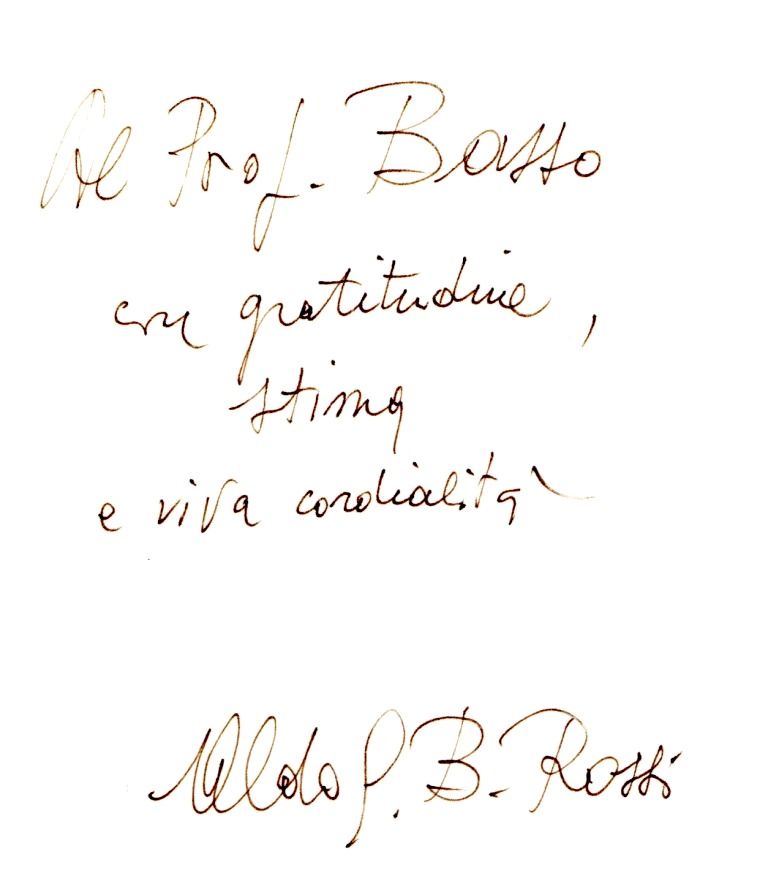 Al Prof. Basso
con gratitudine,
stima
e viva cordialità
Aldo G. B. Rossi